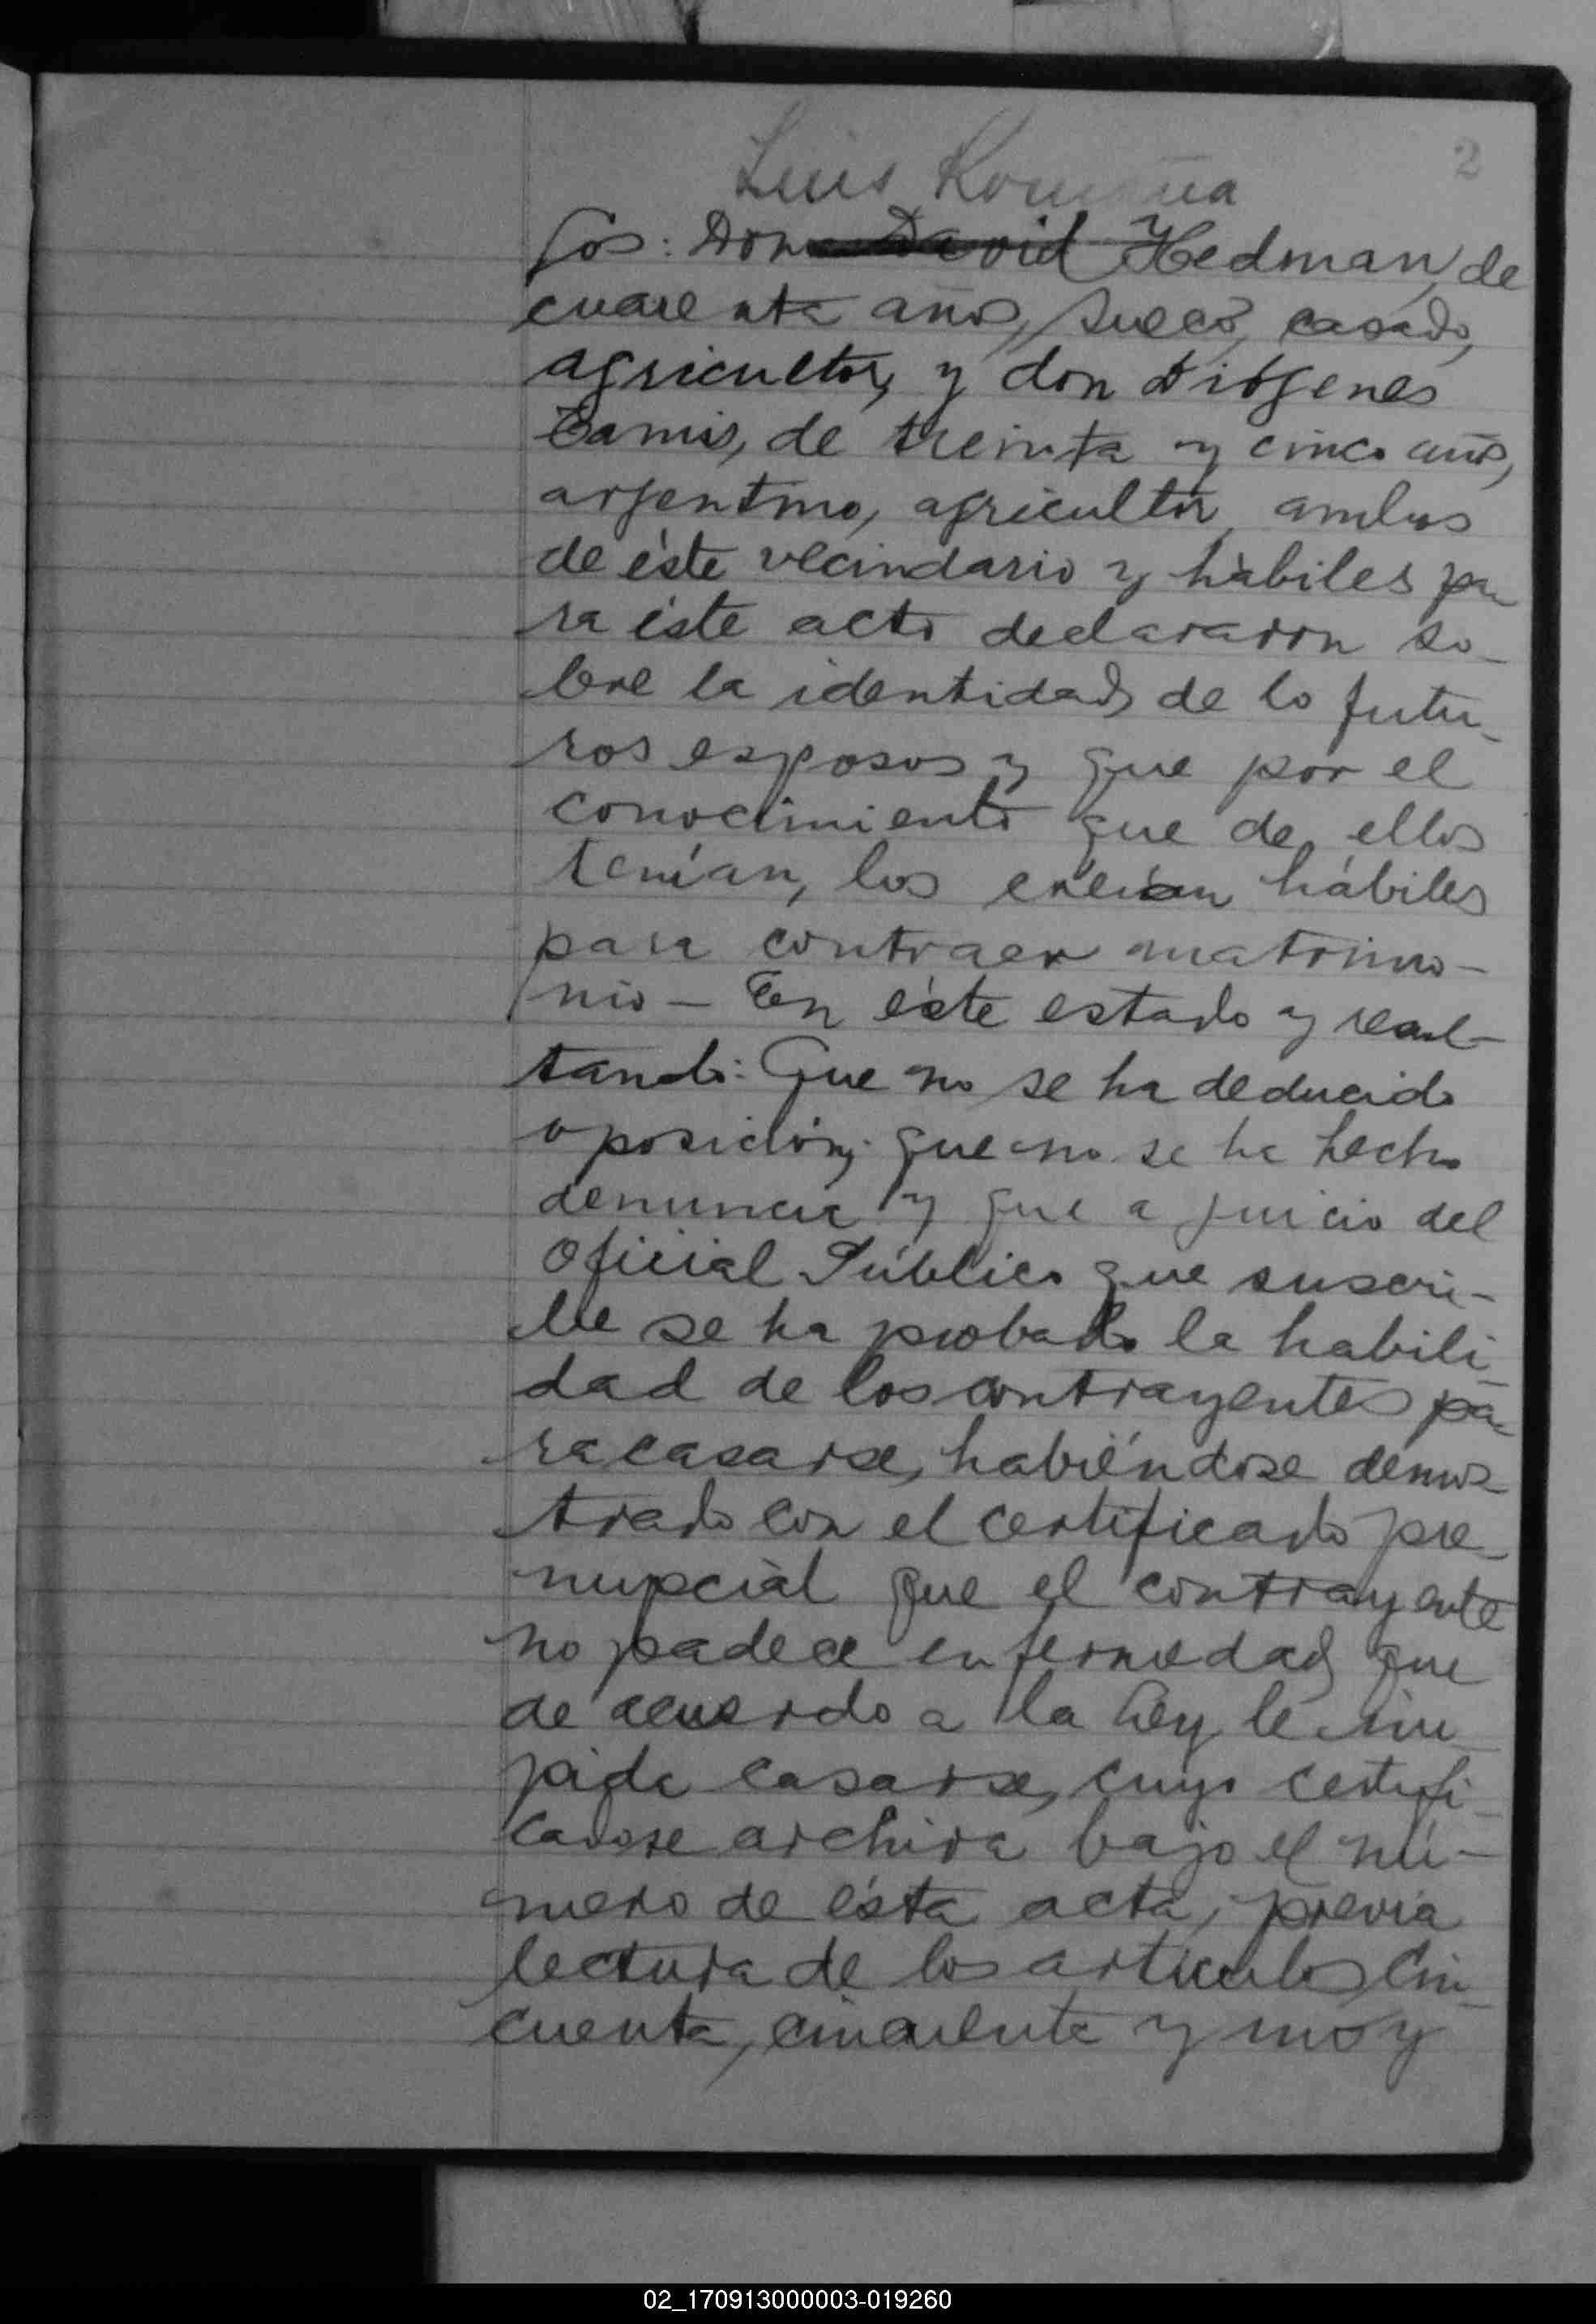 2
Luis
gos: Don David Hedman, de
cuarenta años, sueco, casado,
agricultor, y don Diógenes
de treinta y cinco años,
argentino, agricultor, ambos
de éste vecindario y hábiles pa
ra éste acto declararon so-
bre la identidad de lo futu-
ros esposos y que por el
conocimiento que de ellos
tenían, los creían hábiles
para contraer matrimo-
nio - En éste estado y resul-
tando: Que no se ha deducido
oposición; que no se ha hecho
denuncia y que a juicio del
Oficial Público que suscri-
be se ha probado la habili-
dad de los contrayentes pa-
ra casarse, habiéndose demos-
trado con el certificado pre-
nupcial que el contrayente
no padece enfermedad que
de acuerdo a la Ley le im-
pida casarse, cuyo certifi-
cado se archiva bajo el nú-
mero de ésta acta, previa
lectura de los artículos cin-
cuenta, cincuenta y uno y
02_170913000003-019260